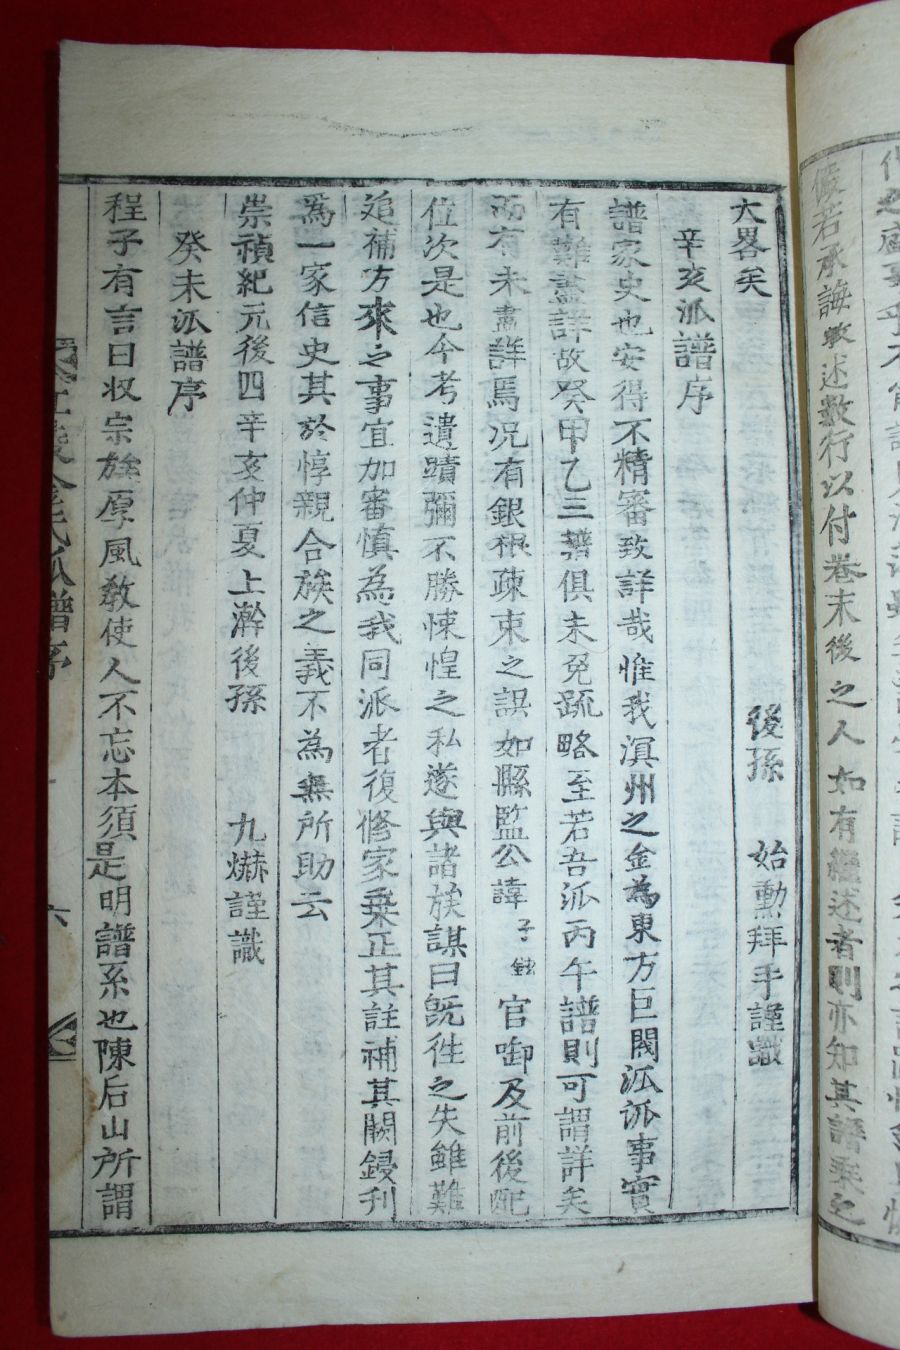 儀若承誨敢述數行以付卷末後之人如有繼述者則亦知其譜乘之
大畧矣
後孫 始勲拜手謹識
辛亥派譜序
譜家史也安得不精審致詳哉惟我溟州之金為東方巨閥泒泒事實
有難盡詳故癸甲乙三譜俱未免疏略至若吾泒丙午譜則可謂詳矣
而有未盡詳焉况有銀根疎束之誤如縣監公諱 子鉉 官啣及前後配
位次是也今考遺蹟彌不勝悚惶之私遂與諸族謀曰旣徃之失雖難
追補方來之事宜加審慎為我同派者復修家乗正其註補其闕鋟刋
為一家信史其於惇親合族之義不為無所助云
崇禎紀元後四辛亥仲夏上澣後孫 九爀謹識
癸未泒譜序
程子有言曰収宗族厚風教使人不忘本須是明譜系也陳后山所謂
金氏泒譜序
六